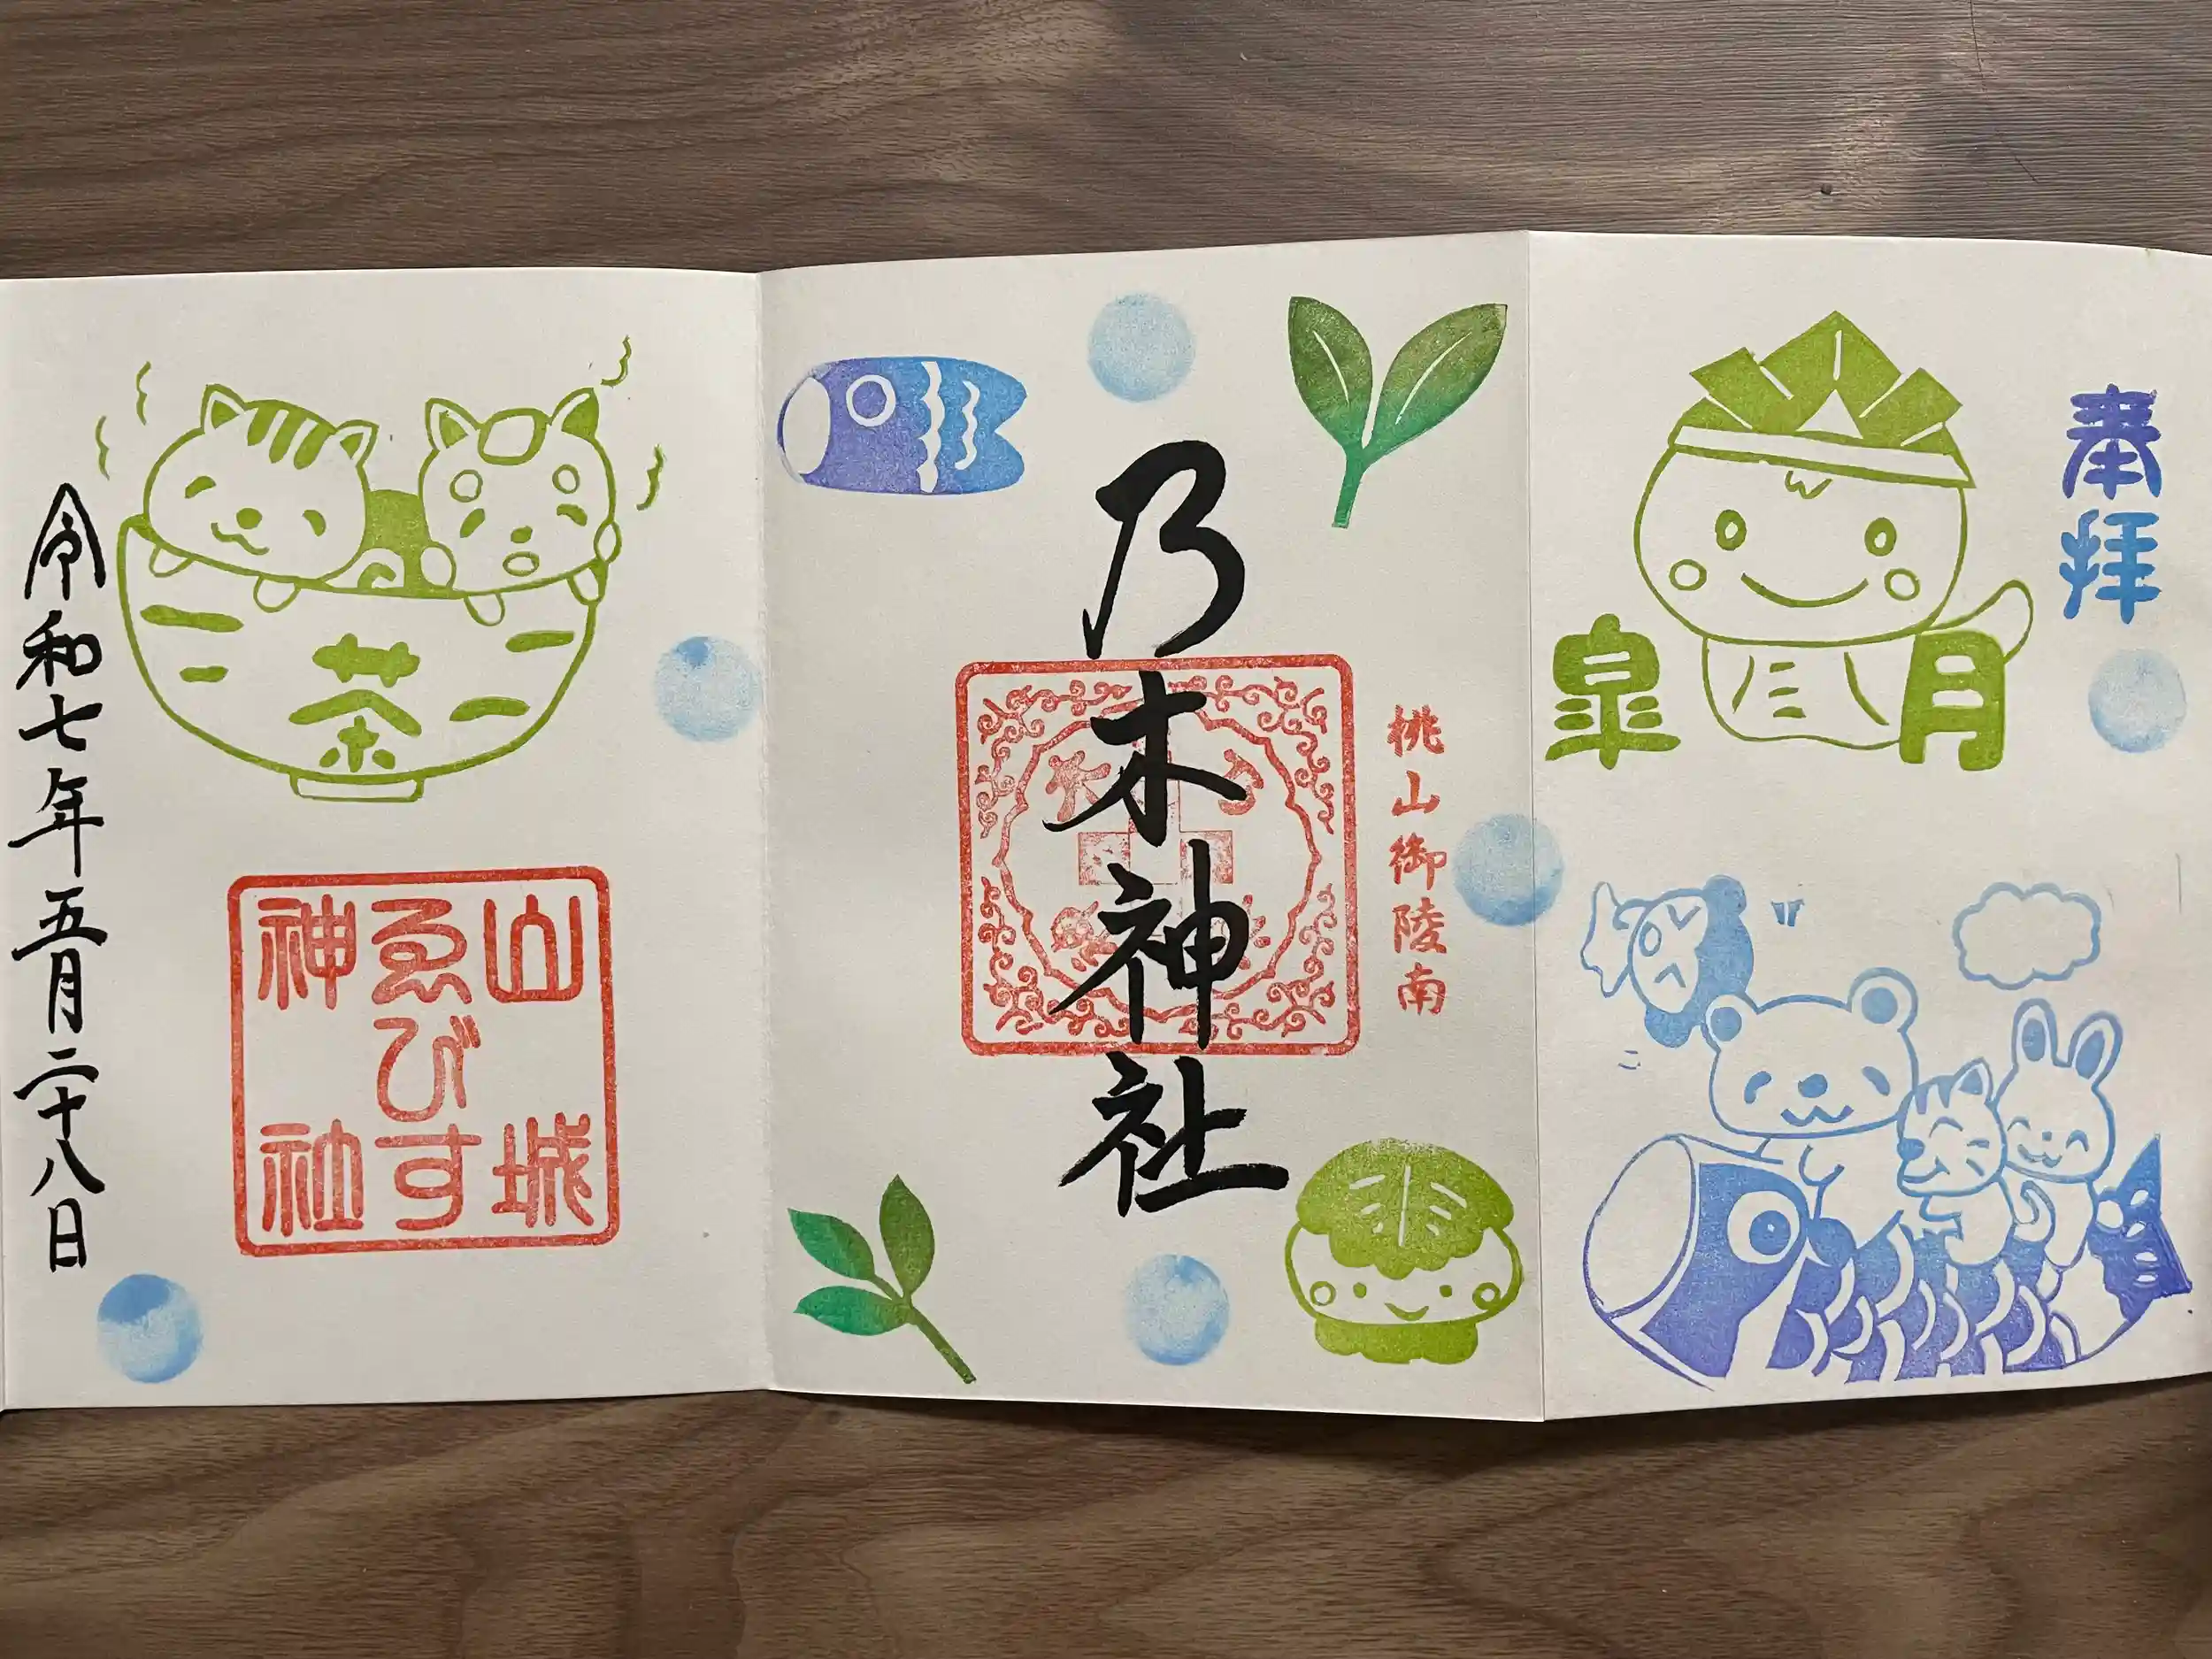 奉拝
皐月
桃山御陵南
乃木神社
山城
ゑびす
神社
茶
令和七年五月二十八日